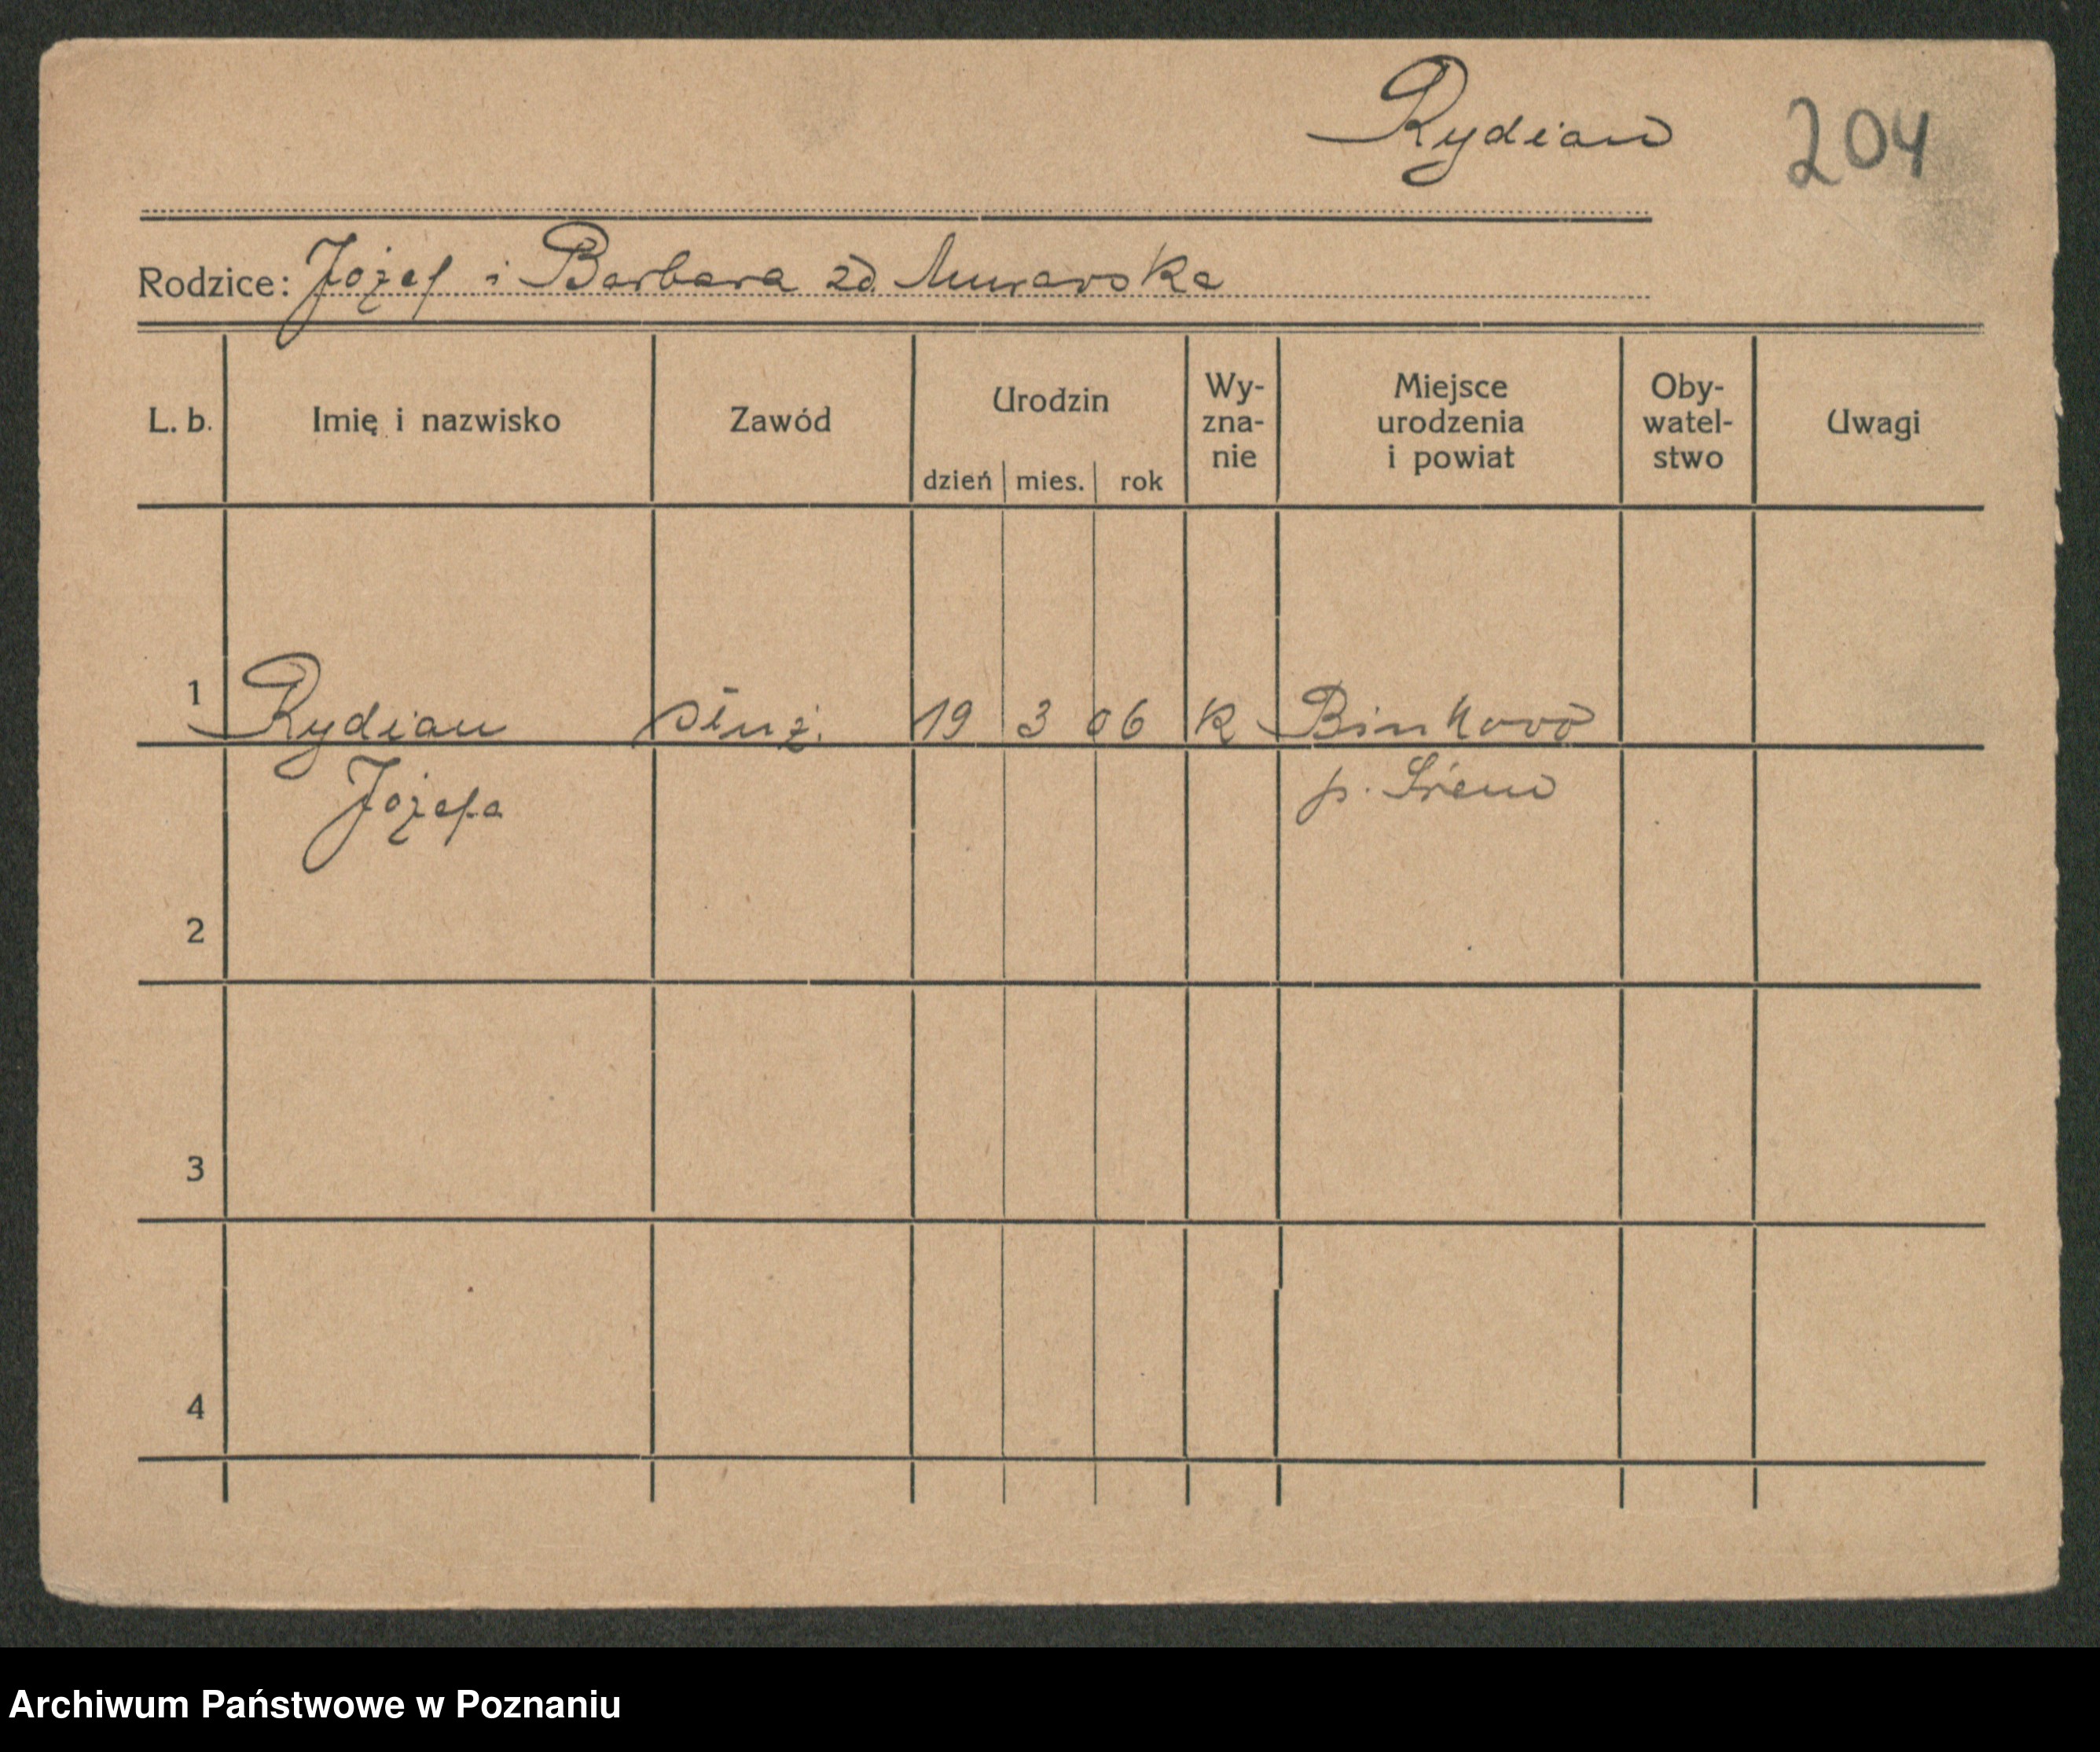 Rydian 204
Rodzice: Józef i Barbara zd. Murawska
L. b. Imię i nazwisko Zawód Urodzin dzień mies. rok Wy-zna-nie Miejsce urodzenia i powiat Oby-watel-stwo Uwagi
1 Rydian służ. 19 3 06 K Binkowo
Józefa p. Śrem
2
3
4
Archiwum Państwowe w Poznaniu